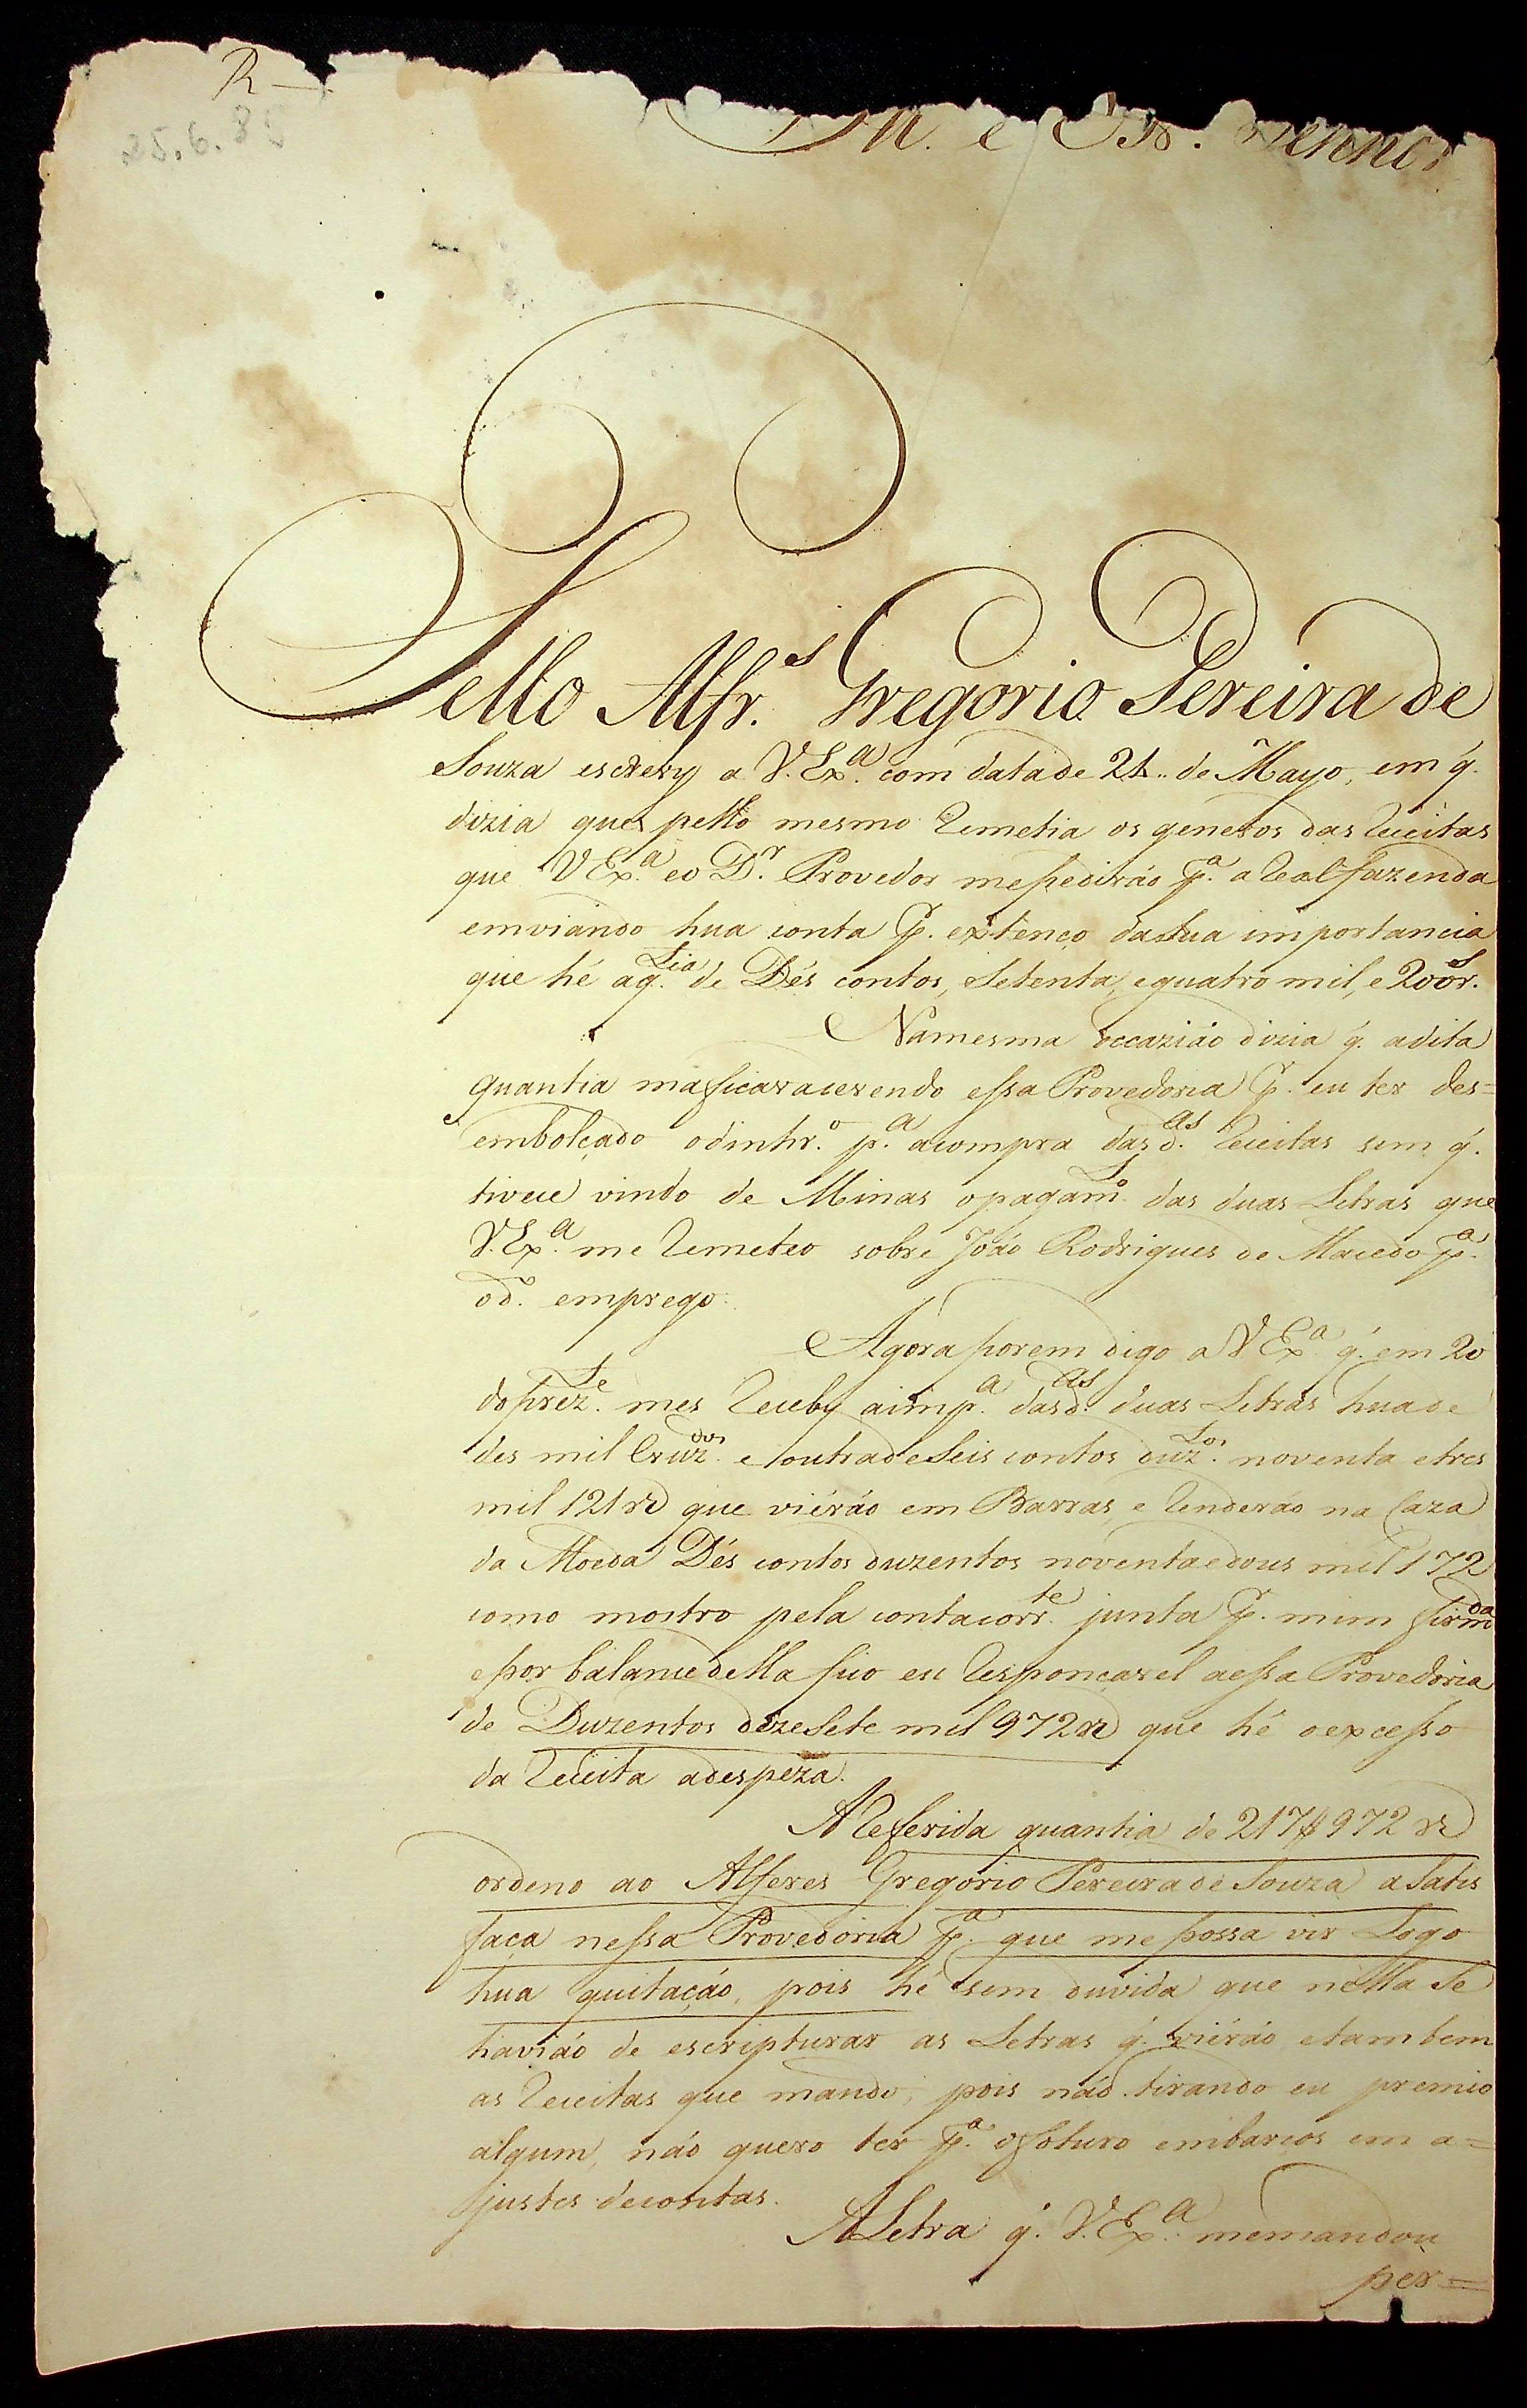 R
25.6.85
Ill. e Ex. Senhor
Pello Alfr.s Gregorio Pereira de
Souza escrevy a V. Ex.a com data de 24 de Mayo, em q.
dizia que pello mesmo remetia os generos das receitas
que V Ex.a eo D.r Provedor me pedirão p.a a Real fazenda
emviando hua conta p.r extenço da sua importancia
que hé a q.tia de Dés contos, Setenta, e quatro mil, e 200 r.s
Na mesma occazião dizia q. a dita
quantia ma ficava devendo essa Provedoria p.r eu ter des=
embolçado o dinhr.o p.a a compra das d.as receitas sem q.
tivece vindo de Minas o pagam.to das duas Letras que
V. Ex.a me remeteo sobre João Rodrigues de Macedo p.a
o d.o emprego.
Agora porem digo a V Ex.a q. em 20
do prez.te mes receby a imp.a das d.as duas Letras hua de
des mil Cruz.dos e outra de Seis contos duz.tos noventa e tres
mil 121 r que viérão em Barras, e renderão na Caza
da Moeda Dés contos duzentos noventa e dous mil 172
como mostro pela conta corr.te junta p.r mim firmda
e por balance della fico eu responcavel a essa Provedoria
de Duzentos dezesete mil 972 r que hé o excesso
da receita a despeza.
A referida quantia de 217$972 r
ordeno ao Alferes Gregorio Pereira de Souza a Satis
faça nessa Provedoria p.a que me possa vir Logo
hua quitação, pois hé sem duvida que nella Se
havião de escripturar as Letras q. viérão e tambem
as receitas que mando; pois não tirando eu premio
algum, não quero ter p.a o foturo embarcos em a=
justes de contas.
A Letra q. V. Ex.a me mandou
per=